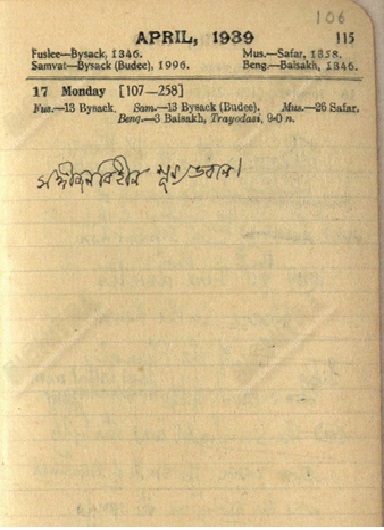 106
APRIL, 1939 115
Fuslee—Bysack, 1346. Mus.—Safar, 1358.
Samvat—Bysack (Budee), 1996. Beng.—Baisakh, 1346.
17 Monday [107—258]
Fus.—13 Bysack. Sam.—13 Bysack (Budee). Mus.—26 Safar.
Beng.—3 Baisakh, Trayodasi, 9-0 n.
সঙ্গীজনবিহীন শূন্যভবনে।